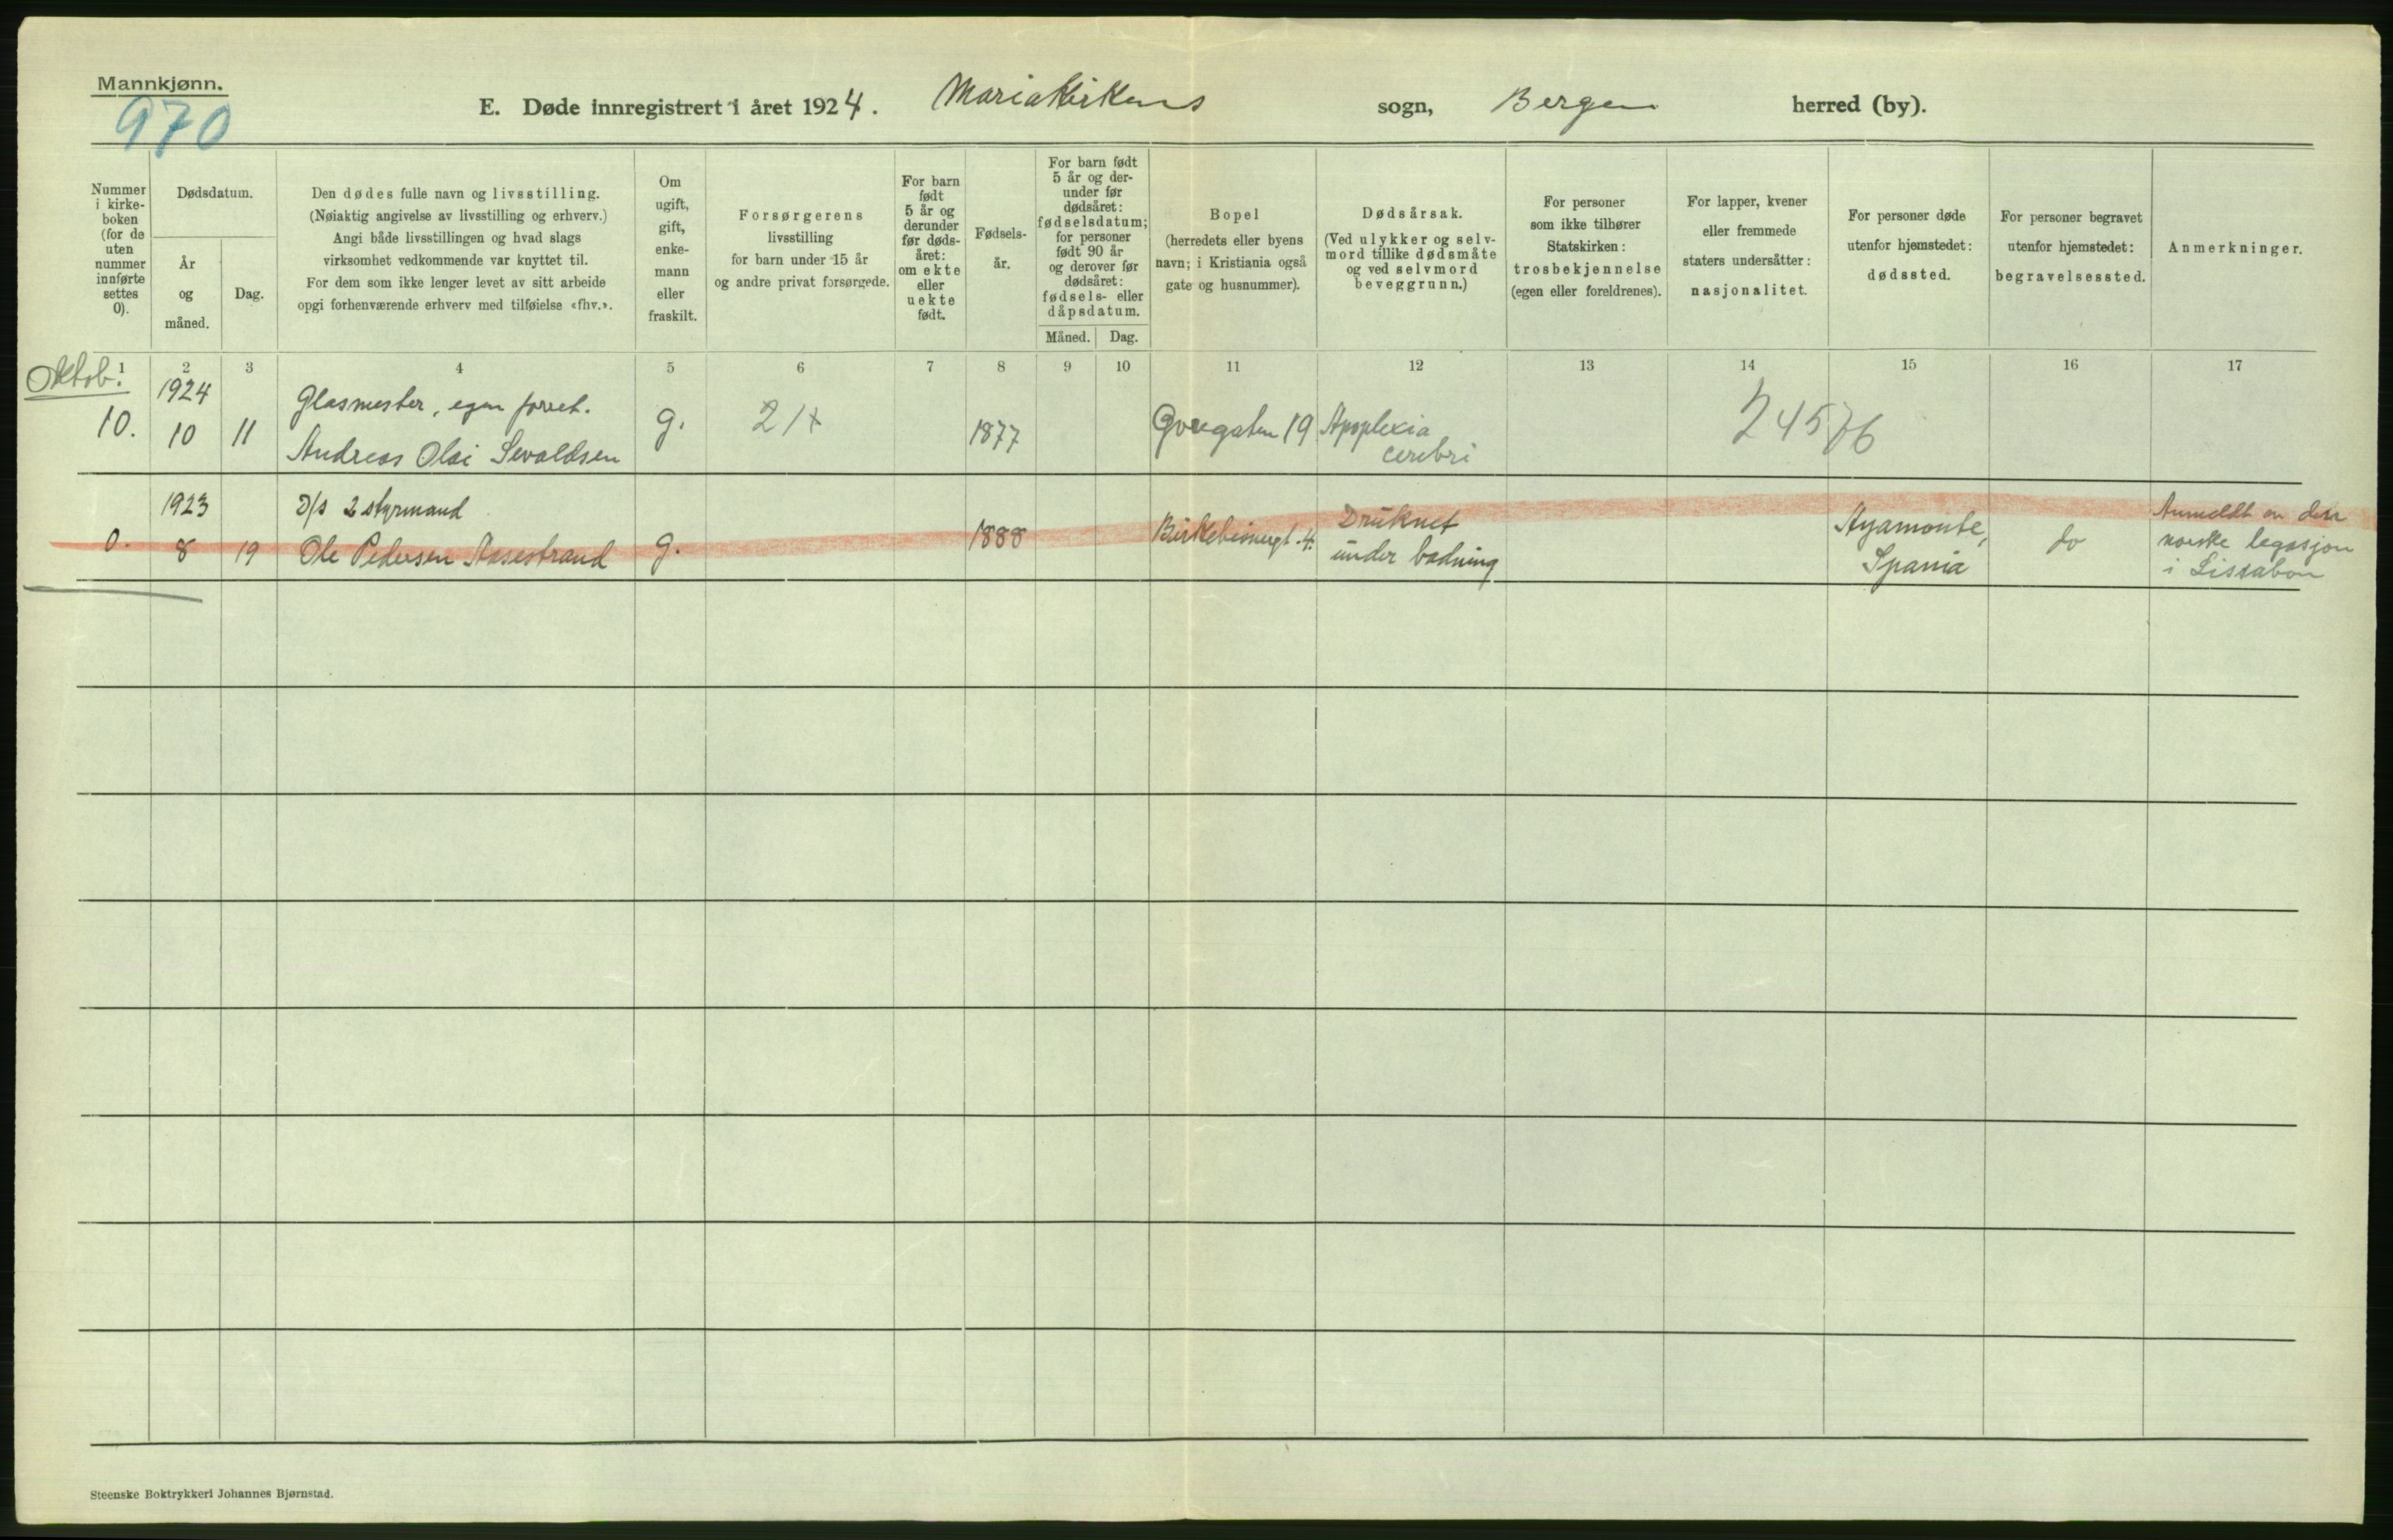 Mannkjønn.
970
E. Døde innregistrert i året 1924. Mariakirkens sogn, Bergen herred (by).
Nummer i kirke- boken (for de uten nummer innførte settes 0).
Dødsdatum.
År og måned.
Dag.
Den dødes fulle navn og livsstilling.
(Nøiaktig angivelse av livsstilling og erhverv.)
Angi både livsstillingen og hvad slags
virksomhet vedkommende var knyttet til.
For dem som ikke lenger levet av sitt arbeide
opgi forhenværende erhverv med tilføielse «fhv.».
Om ugift, gift, enke- mann eller fraskilt.
Forsørgerens
livsstilling
for barn under 15 år
og andre privat forsørgede.
For barn født 5 år og derunder før døds- året: om ekte eller uekte født.
Fødsels- år.
For barn født 5 år og der- under før dødsåret: fødselsdatum; for personer født 90 år og derover før dødsåret: fødsels- eller dåpsdatum.
Måned. Dag.
Bopel
(herredets eller byens
navn; i Kristiania også
gate og husnummer).
Dødsårsak.
(Ved ulykker og selv-
mord tillike dødsmåte
og ved selvmord
beveggrunn.)
For personer
som ikke tilhører
Statskirken:
trosbekjennelse
(egen eller foreldrenes).
For lapper, kvener
eller fremmede
staters undersåtter:
nasjonalitet.
For personer døde
utenfor hjemstedet:
dødssted.
For personer begravet
utenfor hjemstedet:
begravelsessted.
Anmerkninger.
1 2 3 4 5 6 7 8 9 10 11 12 13 14 15 16 17
Oktob.
10. 1924 10 11 Glasmester, egen forret.
Andreas Olai Sevaldsen g. 1877 19 Apoplexia
cerebri 24576
0. 1923 8 19 D/s 2 styrmand
Ole Pedersen Aasestrand g. 1888 4. Druknet
under badning Ayamonte,
Spania do Anmeldt av den
norske legasjon
i Lissabon
Steenske Boktrykkeri Johannes Bjørnstad.